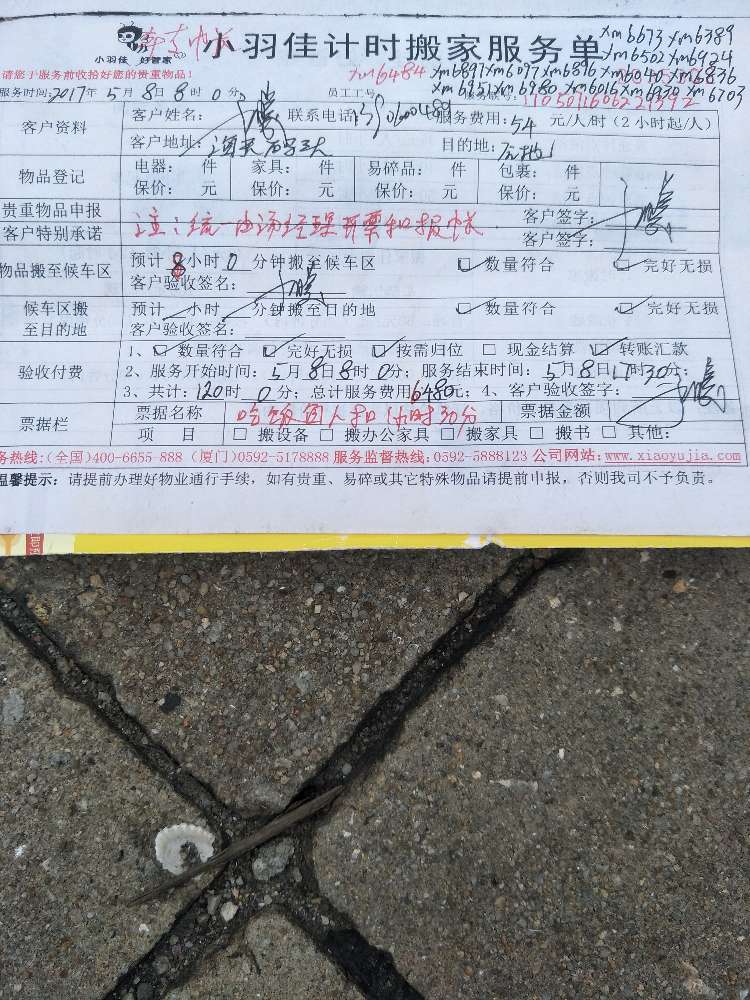 小羽佳计时搬家服务单
小羽佳 好管家
xm6673 xm6389
xm6502 xm6924
xm6484 xm6891 xm6097 xm6816 xm6040 xm6836
xm6951 xm6980 xm6016 xm6930 xm6703
请您于服务前收拾好您的贵重物品!
服务时间:2017年5月8日8时0分 员工工号:
客户资料 客户姓名: 联系电话: 服务费用:54 元/人/时(2小时起/人)
客户地址: 目的地:
物品登记 电器: 件 家具: 件 易碎品: 件 包裹: 件
保价: 元 保价: 元 保价: 元 保价: 元
贵重物品申报 客户签字:
客户特别承诺 注:统一由汤经理开票和报帐 客户签字:
物品搬至候车区 预计8小时0分钟搬至候车区 数量符合 完好无损
客户验收签名:
候车区搬至目的地 预计 小时 分钟搬至目的地 数量符合 完好无损
客户验收签名:
验收付费 1、数量符合 完好无损 按需归位 现金结算 转账汇款
2、服务开始时间:5月8日8时0分;服务结束时间:5月8日17时30分;
3、共计:120时0分;总计服务费用6480元;4、客户验收签字:
票据栏 票据名称 票据金额
项 目 搬设备 搬办公家具 搬家具 搬书 其他:
务热线:(全国)400-6655-888 (厦门)0592-5178888 服务监督热线:0592-5888123 公司网站:www.xiaoyujia.com
温馨提示:请提前办理好物业通行手续,如有贵重、易碎或其它特殊物品请提前申报,否则我司不予负责。